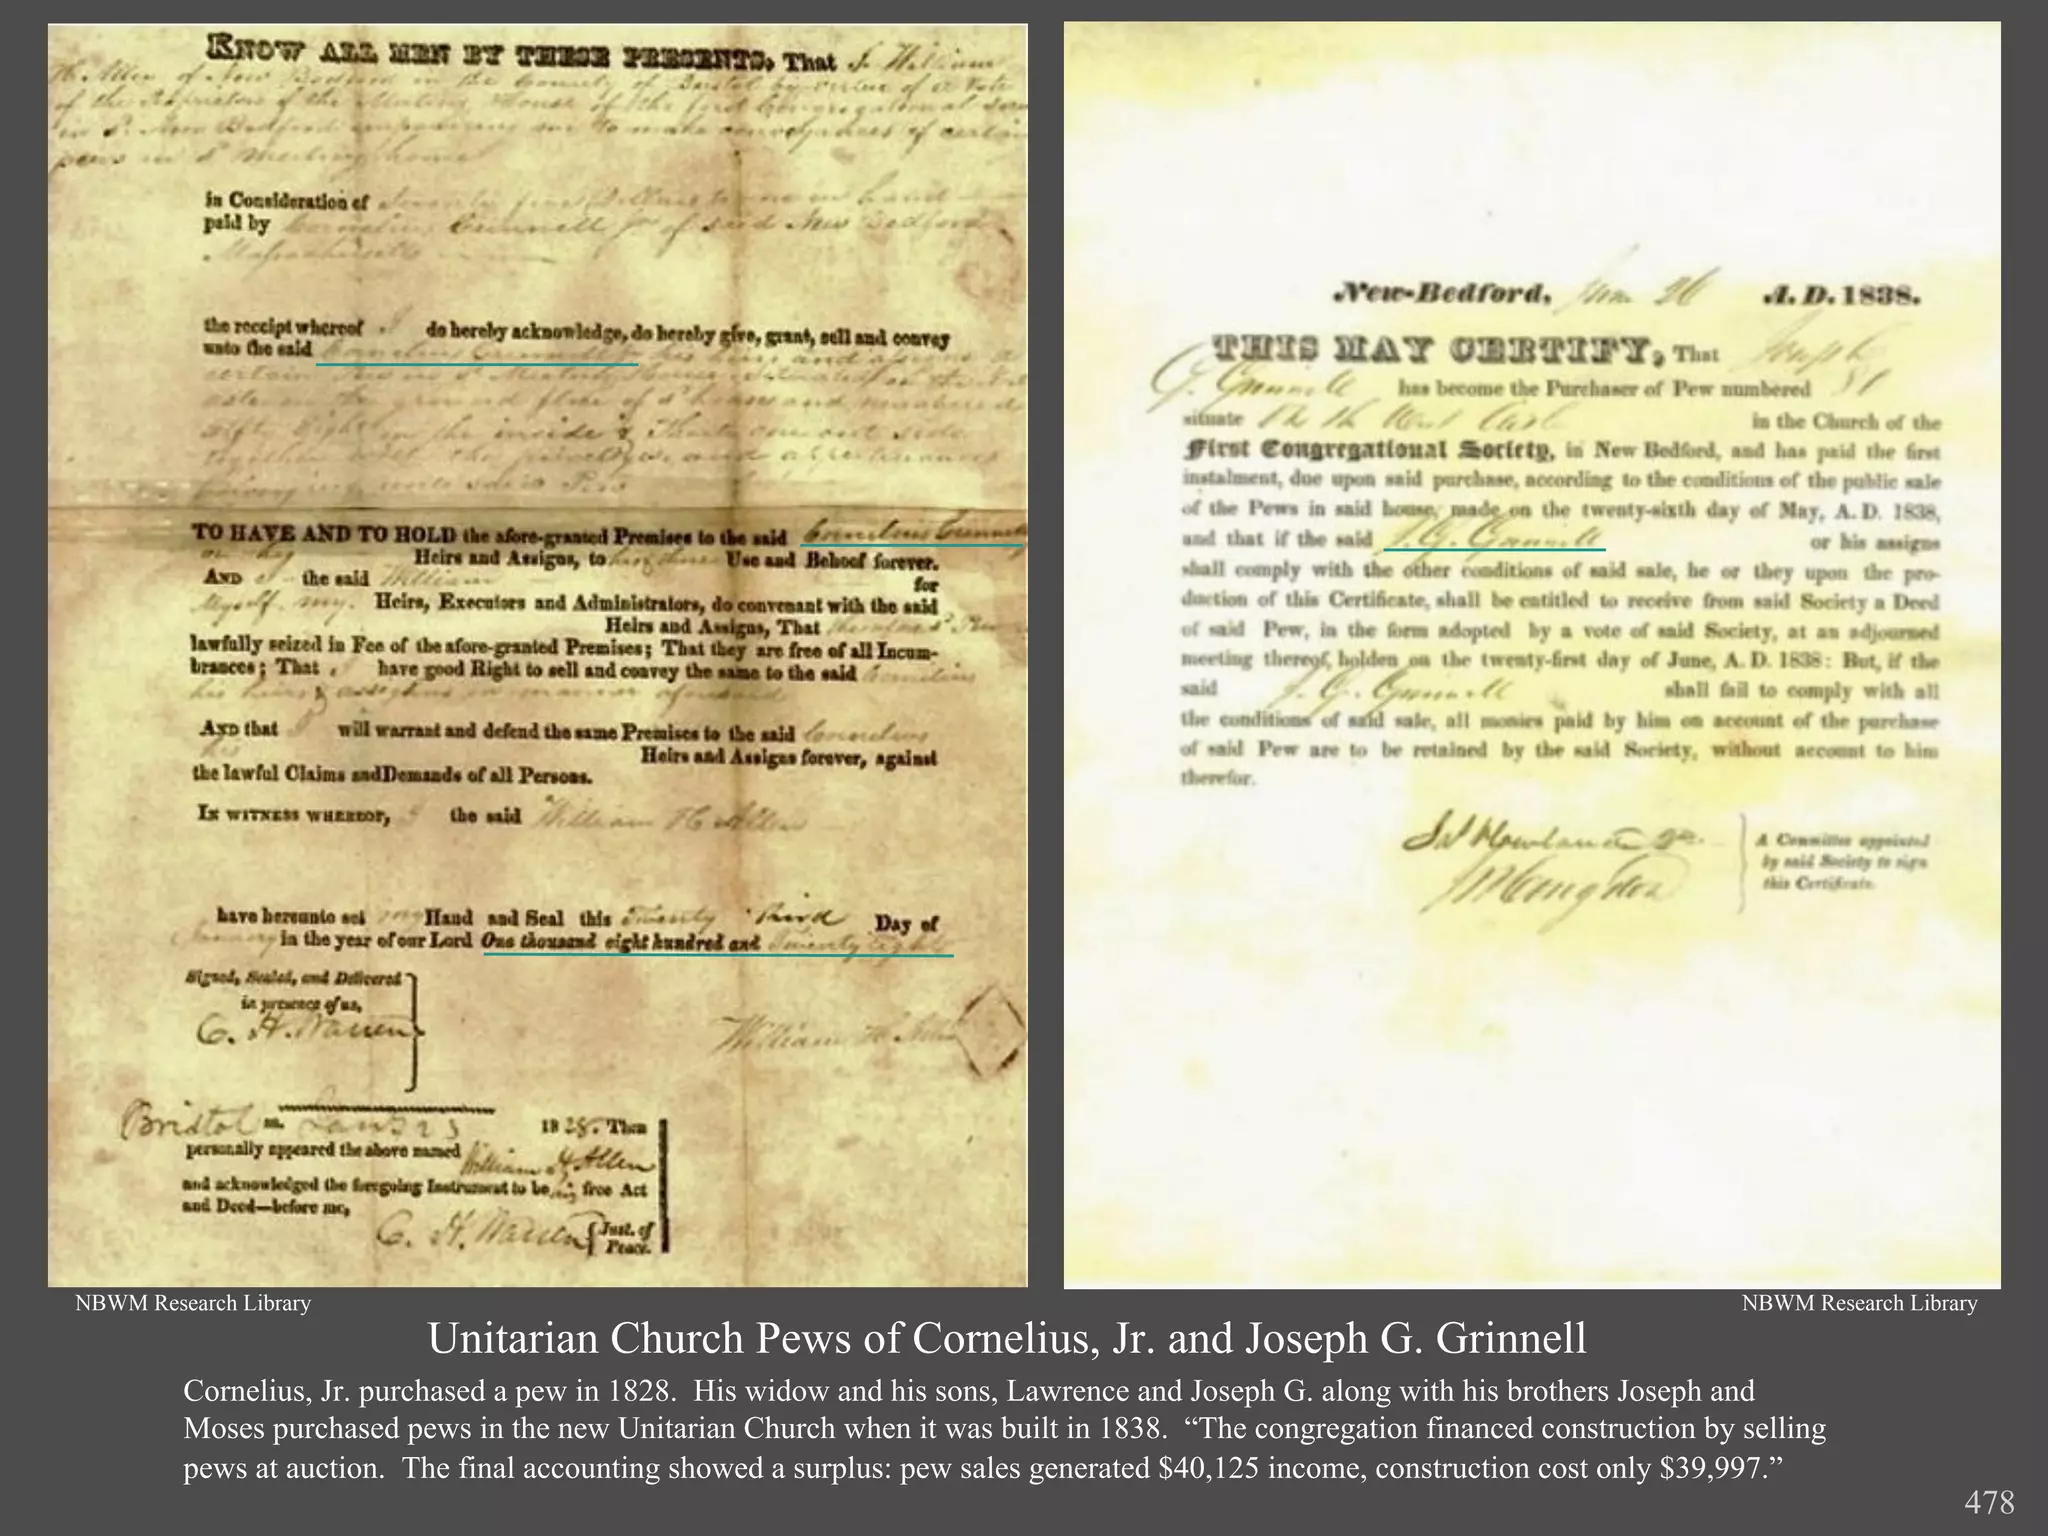 KNOW ALL MEN BY THESE PRESENTS, That I. William
H. Allen of New Bedford in the County of Bristol by virtue of a Vote
of the Proprietors of the Meeting House of the first Congregational
in sd. New Bedford empowering me to make conveyances of certain
pews in sd Meeting house
in Consideration of Seventy five Dollars to me in hand
paid by Cornelius Grinnell Jr of said New Bedford
Massachusetts
the receipt whereof I do hereby acknowledge, do hereby give, grant, sell and convey
unto the said Cornelius Grinnell his heirs and assigns a
certain Pew in sd Meeting House situated on the
on the ground floor of sd house and numbered
fifty Eight on the inside & Thirty one out side
together with the privileges and appurtenances
belonging unto said Pew
TO HAVE AND TO HOLD the afore-granted Premises to the said Cornelius Grinnell
Heirs and Assigns, to Use and Behoof forever.
AND I the said William for
Myself, my Heirs, Executors and Administrators, do convenant with the said
Heirs and Assigns, That
lawfully seized in Fee of the afore-granted Premises; That they are free of all Incum-
brances; That I have good Right to sell and convey the same to the said Cornelius
his heirs & assigns in manner aforesaid
AND that I will warrant and defend the same Premises to the said Cornelius
his Heirs and Assigns forever, against
the lawful Claims and Demands of all Persons.
IN WITNESS WHEREOF, I the said William H Allen
have hereunto set my Hand and Seal this Twenty third Day of
January in the year of our Lord One thousand eight hundred and Twenty eight
Signed, Sealed, and Delivered
in presence of us,
C. H. Warren
William H. Allen
Bristol ss. Jan 23 1828. Then
personally appeared the above named William H Allen
and acknowledged the foregoing Instrument to be his free Act
and Deed—before me,
C. H. Warren Just. of
Peace.
New-Bedford, June 26 A. D. 1838.
THIS MAY CERTIFY, That Joseph
G. Grinnell has become the Purchaser of Pew numbered 81
situate North West Aisle in the Church of the
First Congregational Society, in New Bedford, and has paid the first
instalment, due upon said purchase, according to the conditions of the public sale
of the Pews in said house, made on the twenty-sixth day of May, A. D. 1838,
and that if the said J. G. Grinnell or his assigns
shall comply with the other conditions of said sale, he or they upon the pro-
duction of this Certificate, shall be entitled to receive from said Society a Deed
of said Pew, in the form adopted by a vote of said Society, at an adjourned
meeting thereof, holden on the twenty-first day of June, A. D. 1838: But, if the
said J. G. Grinnell shall fail to comply with all
the conditions of said sale, all monies paid by him on account of the purchase
of said Pew are to be retained by the said Society, without account to him
therefor.
Howland Jr. A Committee appointed
by said Society to sign
Congdon this Certificate.
NBWM Research Library
NBWM Research Library
Unitarian Church Pews of Cornelius, Jr. and Joseph G. Grinnell
Cornelius, Jr. purchased a pew in 1828. His widow and his sons, Lawrence and Joseph G. along with his brothers Joseph and
Moses purchased pews in the new Unitarian Church when it was built in 1838. “The congregation financed construction by selling
pews at auction. The final accounting showed a surplus: pew sales generated $40,125 income, construction cost only $39,997.”
478